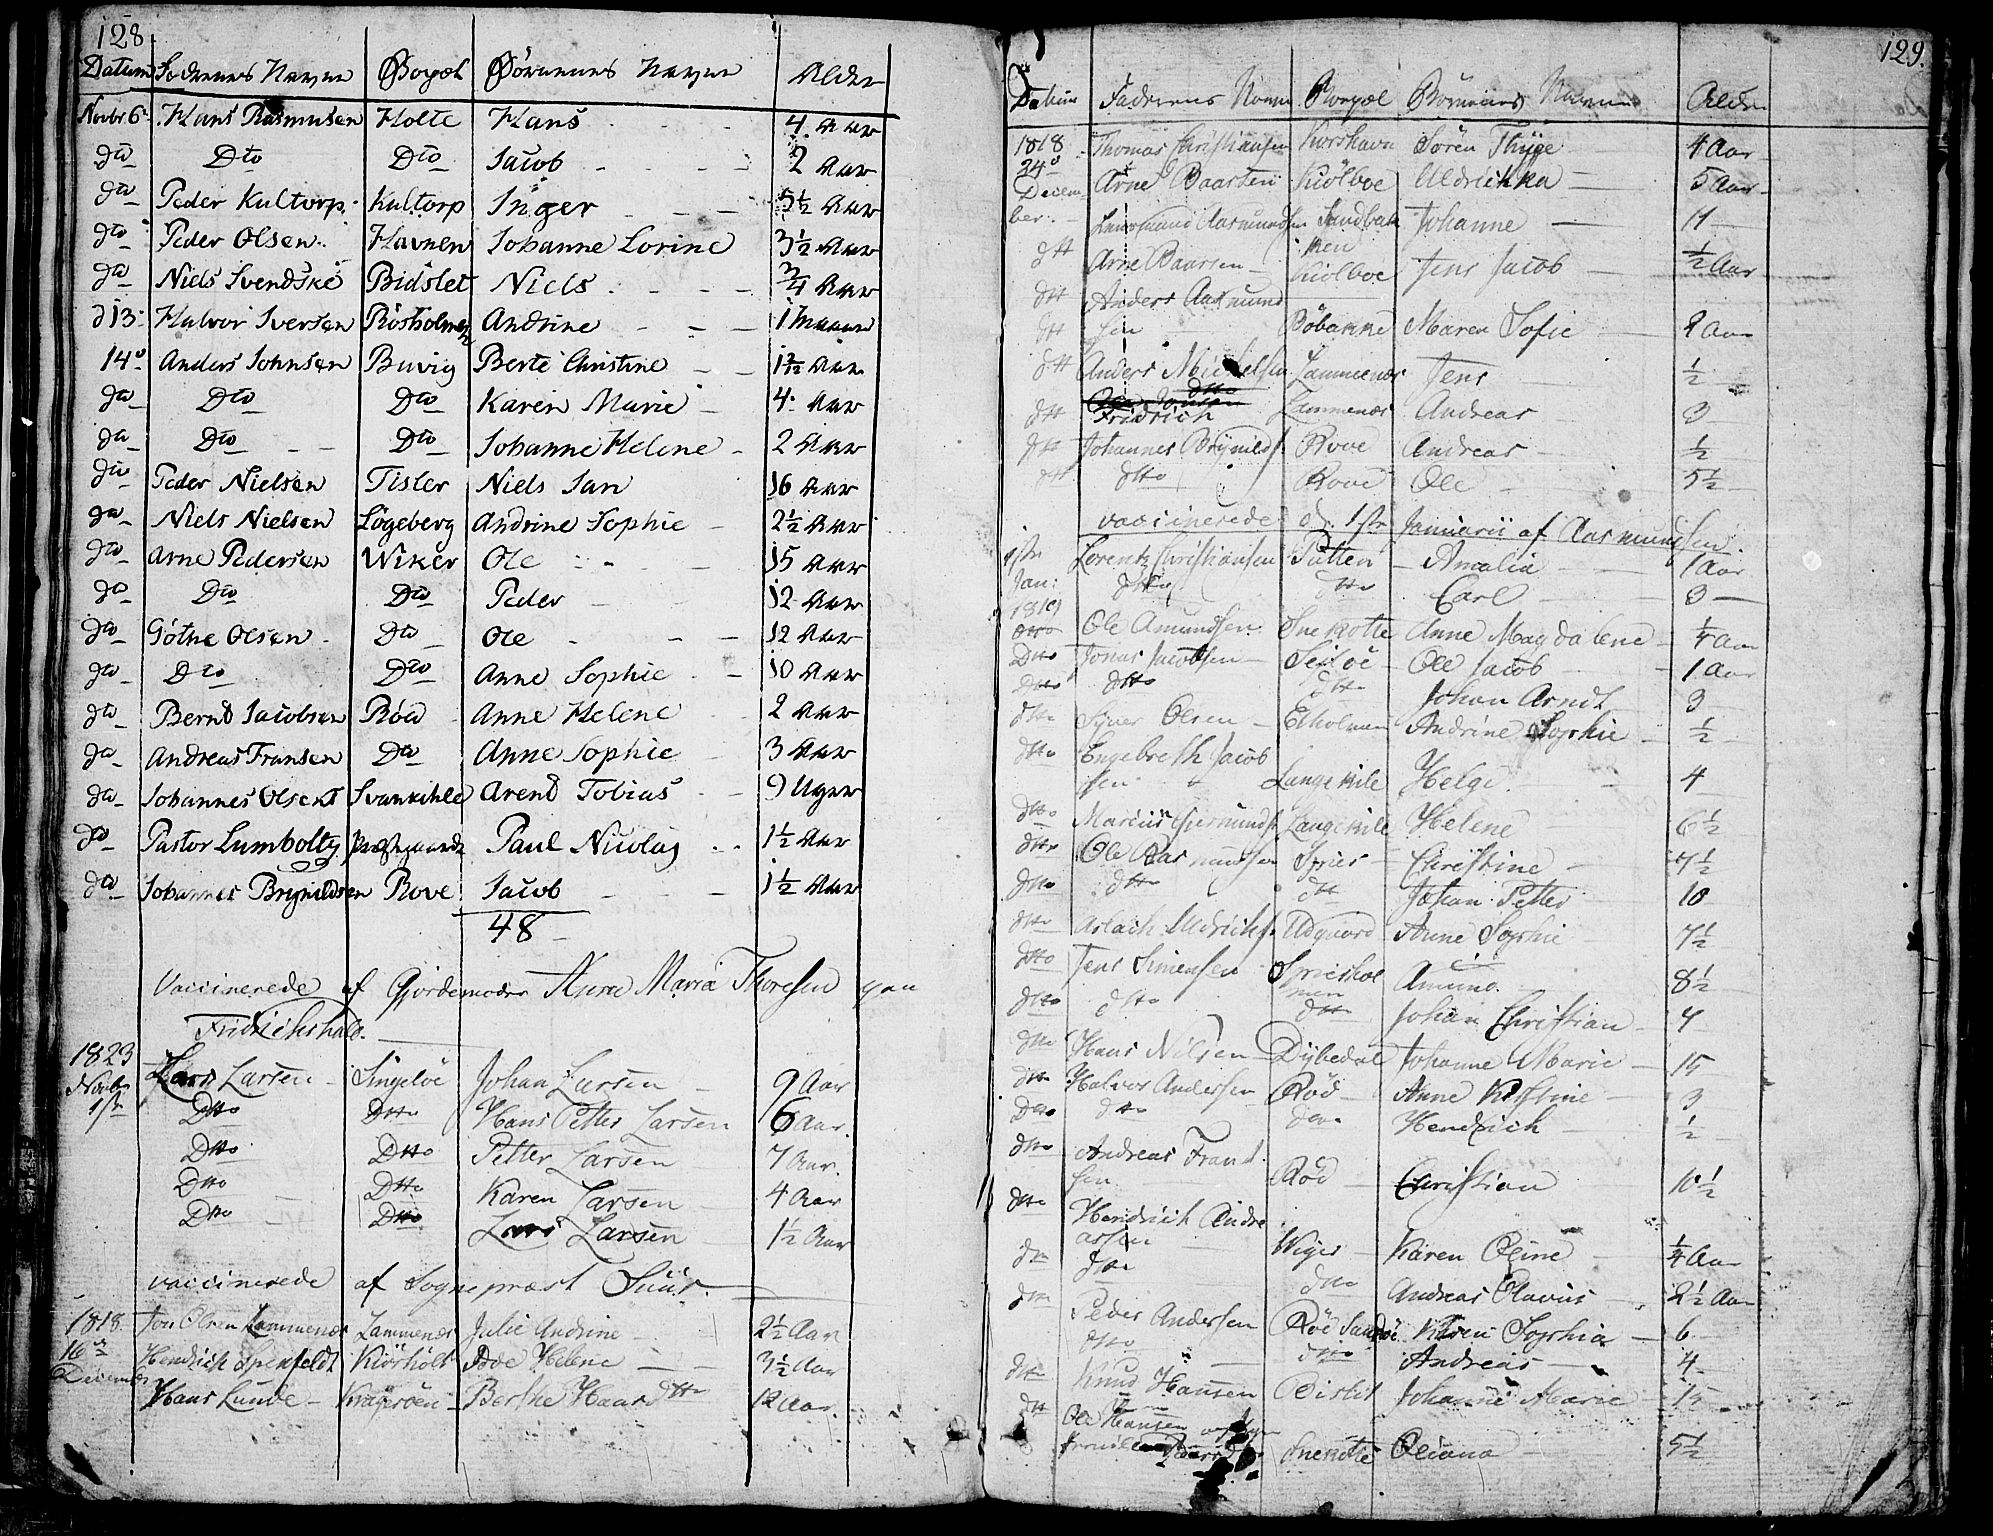 128
Datum Fædrenes Navne Bopæl Börnenes Navne Alder
Novbr 6. Hans Rasmusen Holte Hans 4 Aar
do Dto Dto Jacob 2 Aar
do Peder Kultorp Kultorp Inger 5½ Aar
do Peder Olsen Havnen Johanne Lorine 3½ Aar
do Niels Svendske Bidslet Niels ¾ Aar
d 13 Halvor Iversen Rösholmen Andrine 1 Maaned
14 Anders Johnsen Buvig Berte Christine 1½ Aar
do Dto Dto Karen Marie 4 Aar
do Dto Dto Johanne Helene 2 Aar
do Peder Nielsen Tisler Niels Jan 16 Aar
do Niels Nielsen Lögeberg Andrine Sophie 2½ Aar
do Arne Pedersen Wiker Ole 15 Aar
do Dto Dto Peder 12 Aar
do Göthe Olsen Dto Ole 12 Aar
do Dto Dto Anne Sophie 10 Aar
do Bernt Jacobsen Röd Anne Helene 2 Aar
do Andreas Fransen Dto Anne Sophie 3 Aar
do Johannes Olsen Svankihle Arent Tobias 9 Uger
do Pastor Lumholtz Præstegaarden Paul Nicolay 1½ Aar
do Johannes Brynildsen Rove Jacob 1½ Aar
48
Vaccinerede af Gjordemoder Anne Maria Thoresen fra
Fridrichshald.
1823 Lars Larsen Singelöe Johan Larsen 9 Aar
Novbr 1ste Dtto Dtto Hans Petter Larsen 6 Aar
Dtto Dtto Petter Larsen 7 Aar
Dtto Dtto Karen Larsen 4 Aar
Dtto Dtto Lars Larsen 1½ Aar
vaccinerede af Sognepræst Suur
1818 Jon Olsen Lammenæs Lammenæs Julie Andrine 2½ Aar
16 Hendrich Spenfeldt Kiörholt Helene 3½ Aar
December Hans Lunde Krageröen Berthe 12 Aar
129.
Datum Fadrenes Navne Boepæl Börnenes Navne Alder
1818 Thomas Christiansen Korshavn Sören Thyge 4 Aar
24 Arne Baarsen Kiölboe Uldrichka 5 Aar
December Aasmundsen Sandbakken Johanne 11
dtt Arne Baarsen Kiölboe Jens Jacob ½ Aar
dtt Anders Aasmund
dtt sen Böbakke Maren Sofie 2 Aar
dtt Anders Michelsen Lammenæs Jens ½
dtt Fridrich dtto Lammenæs Andreas 3
dtt Johannes Brynilds. Rove Andreas ½
dtt dtto Rove Ole 5½
vaccinerede d. 1ste Januarii af Aasmundsen
1ste Lorentz Christiansen Putten Amalia 1 Aar
Jan: 1819 dtto dtto Carl 3
dtto Ole Amundsen Snekotte Anne Magdalene ¼ Aar
Dtto Jonas Jacobsen Seilöe Ole Jacob 1 Aar
dtto dtto dtto Johan Arndt 3
dtto Siver Olsen Eholmen Andrine Sophie ½
dtto Engebreth Jacob
sen Langekile Helge 4
dtto Marcus Giermunds. Langekile Helene 6½
dtto Ole Aasmundsen Spier Christine 7½
dtto dtto dtt Johan Petter 10
dtto Aslach Uldrichs. Udgaard Anne Sophie 7½
dtto Jens Simensen Spiesholmen Amund 8½
dtto dtto dtto Johan Christian 4
dtto Hans Nilsen Dybedal Johanne Marie 15
dtto Halvor Andersen Röd Anne Kistine 3
Dtto dtto dtto Hendrich ½
dtto Andreas Frand
sen Röd Christian 10½
dtto Hendrich Andre
assen Wiger Karen Oline ¼ Aar
dtto dtto dtto Andreas Olavus 2½ Aar
dtto Peder Andersen Röd Sandöe Karen Sophia 6
dtto dtto Andreas 4
dtto Knud Hansen Bislet Johanne Marie 15
dtt Ole Hansen
Snekotte Oliana 5½